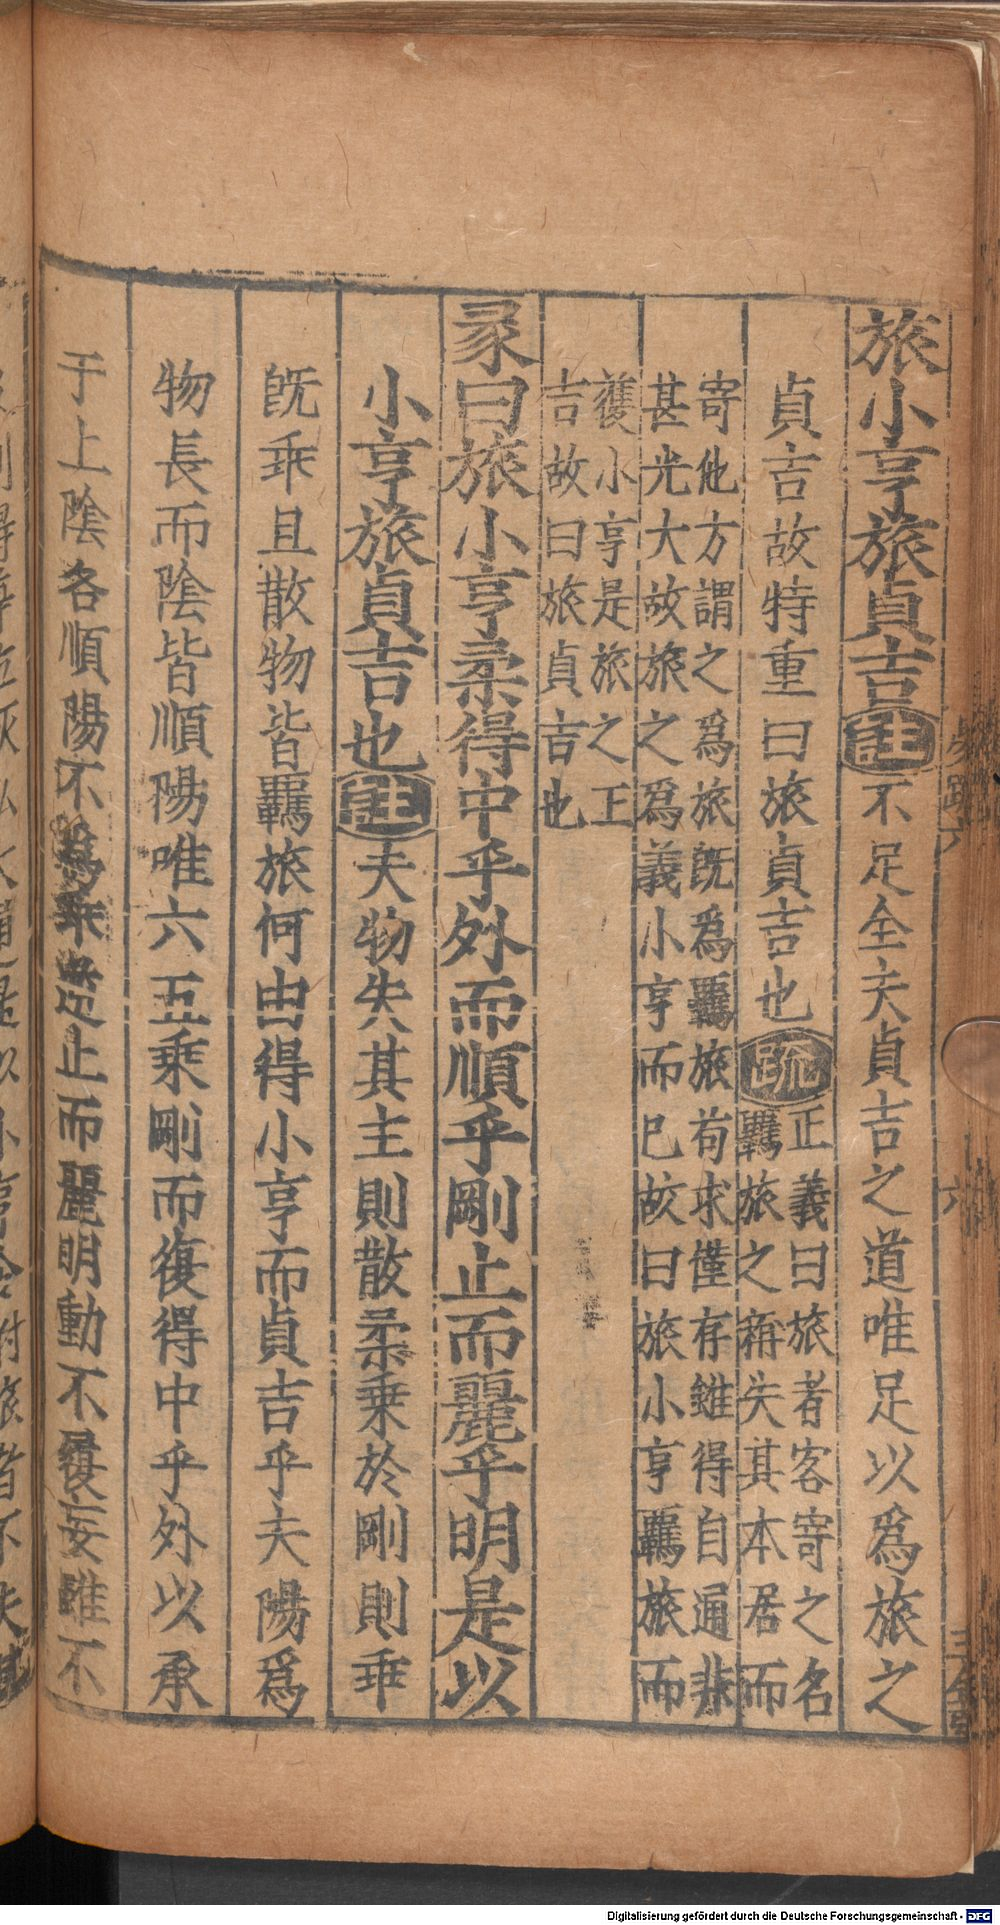 旅小亨旅貞吉註不足全夫貞吉之道唯足以爲旅之
貞吉故特重曰旅貞吉也疏正義曰旅者客寄之名
羈旅之稱失其本居而
寄他方謂之爲旅既爲羈旅苟求僅存雖得自通非
甚光大故旅之爲義小亨而已故曰旅小亨羈旅而
獲小亨是旅之正
吉故曰旅貞吉也
彖曰旅小亨柔得中乎外而順乎剛止而麗乎明是以
小亨旅貞吉也註夫物失其主則散柔乗於剛則乖
既乖且散物皆羈旅何由得小亨而貞吉乎夫陽爲
物長而陰皆順陽唯六五乗剛而復得中乎外以承
于上陰各順陽不爲乖逆止而麗明動不履妄雖不
Digitalisierung gefördert durch die Deutsche Forschungsgemeinschaft - DFG